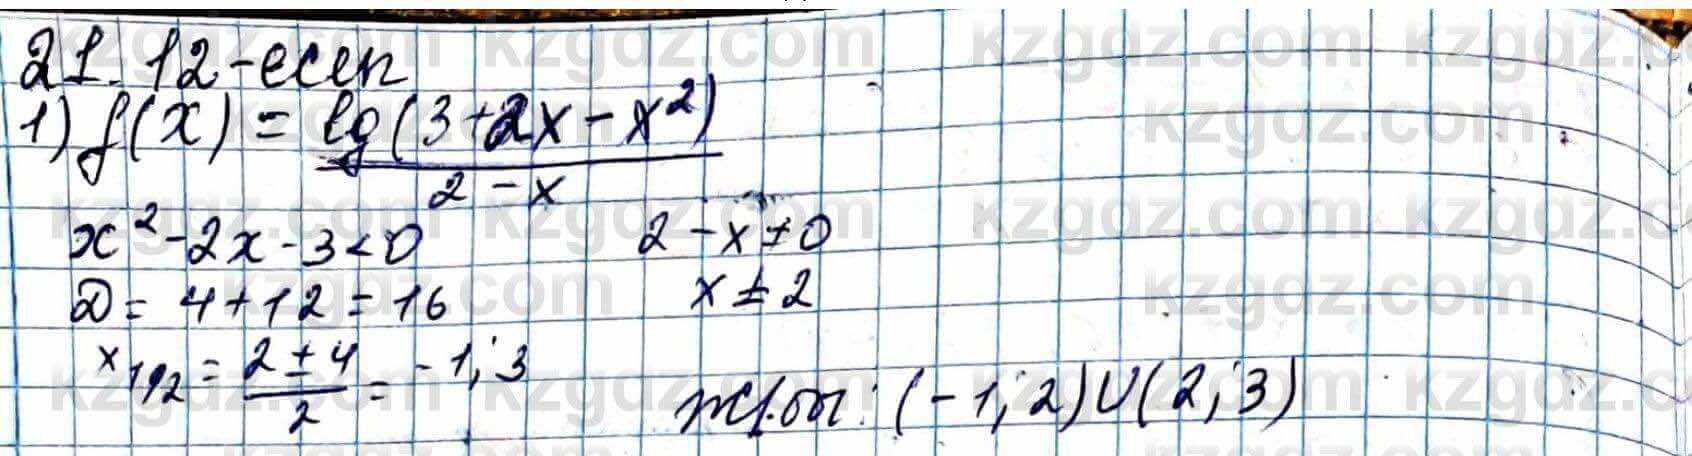 21.12-есеп
1) f(x) = lg(3+2x-x²)
2-x
x²-2x-3<0 2-x≠0
D = 4+12=16 x≠2
x₁,₂ = 2±4 / 2 = -1; 3
Ж/бы: (-1; 2)U(2; 3)
kzgdz.com